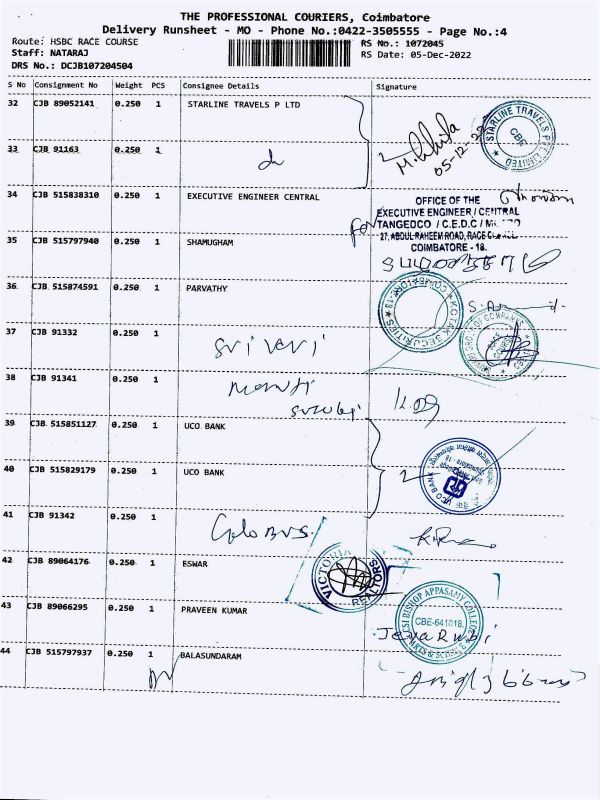 THE PROFESSIONAL COURIERS, Coimbatore
Delivery Runsheet - MO - Phone No.:0422-3505555 - Page No.:4
Route: HSBC RACE COURSE
RS No.: 1072045
Staff: NATARAJ
RS Date: 05-Dec-2022
DRS No.: DCJB107204504
S No Consignment No Weight PCS Consignee Details Signature
32 CJB 89052141 0.250 1 STARLINE TRAVELS P LTD
05-12-22
STARLINE TRAVELS PVT. LIMITED
CBE
33 CJB 91163 0.250 1
34 CJB 515838310 0.250 1 EXECUTIVE ENGINEER CENTRAL
OFFICE OF THE
for EXECUTIVE ENGINEER / CENTRAL
TANGEDCO / C.E.D.C /
27, ABDUL RAHEEM ROAD, RACE
COIMBATORE - 18.
35 CJB 515797940 0.250 1 SHAMUGHAM
36 CJB 515874591 0.250 1 PARVATHY
KOTAK SECURITIES
COIMBATORE-18
37 CJB 91332 0.250 1
OF COMPANIES
RACE COURSE
38 CJB 91341 0.250 1 Maruti
suzuki
39 CJB 515851127 0.250 1 UCO BANK
40 CJB 515829179 0.250 1 UCO BANK
2
UCO BANK
41 CJB 91342 0.250 1
42 CJB 89064176 0.250 1 ESWAR
VICTORIA REALTORS
43 CJB 89066295 0.250 1 PRAVEEN KUMAR
CSI BISHOP APPASAMY COLLEGE
CBE-641018.
Jeya Rubi
44 CJB 515797937 0.250 1 BALASUNDARAM